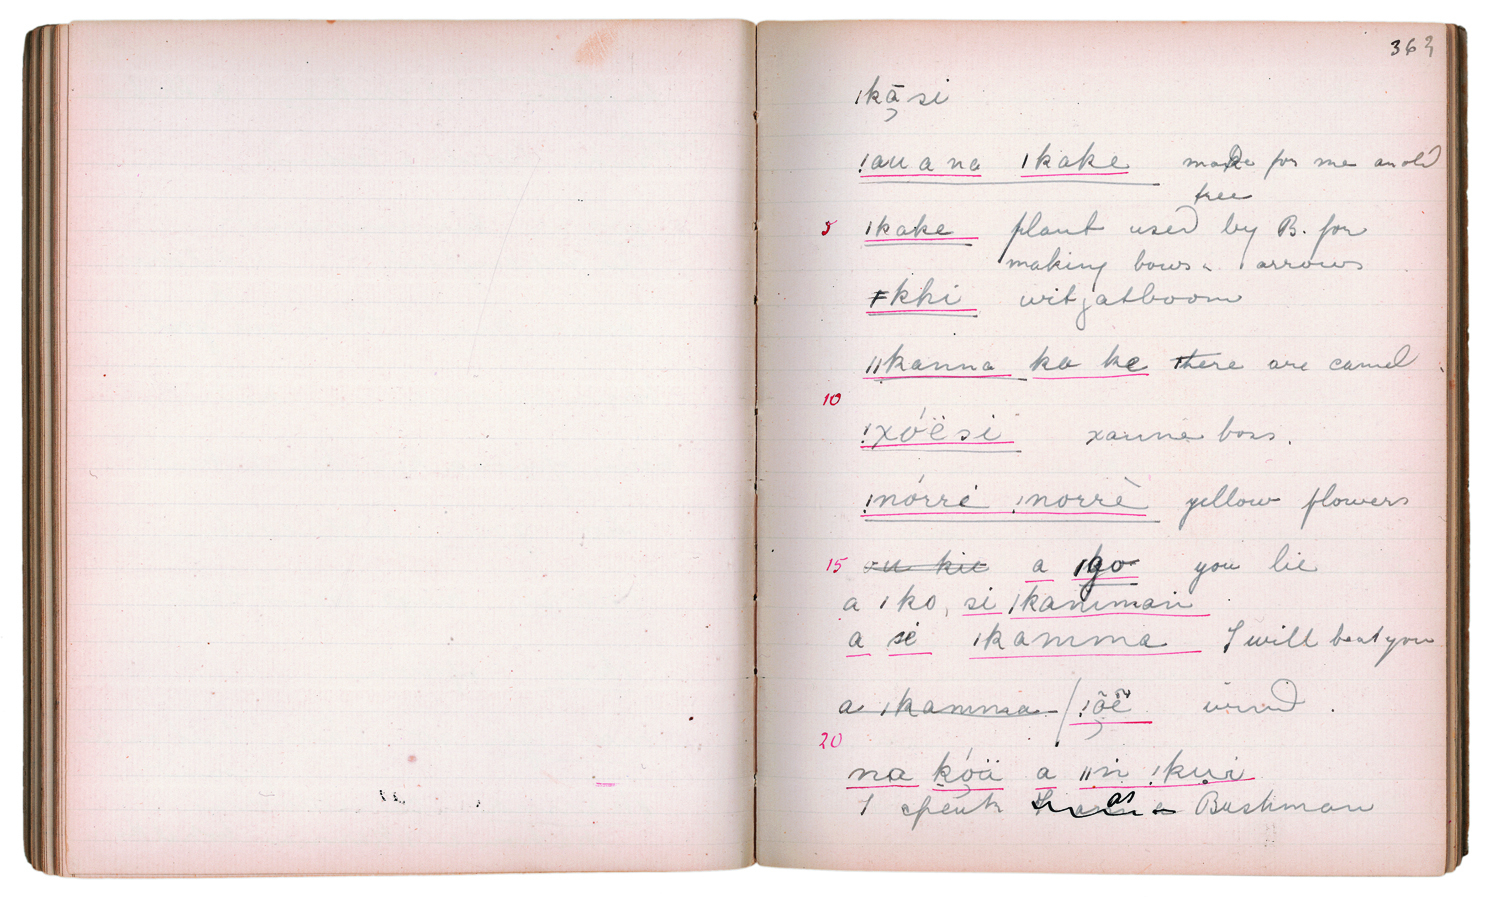 363
ǀkā̰si
!auana ǀkake make for me an old
tree
5 ǀkake plant used by B. for
making bows & arrows
ǂkhi witgatboom
ǁkanna ka ke there are camel
10
!xóësi boss.
!nórrè !norrè yellow flowers
15 a ǀgo you lie
a ǀko, si ǀkamman
a sè ǀkamma I will beat you
a ǀkamma / !õẽ wind.
20
na kóü a ǁn !kui
I speak as a Bushman